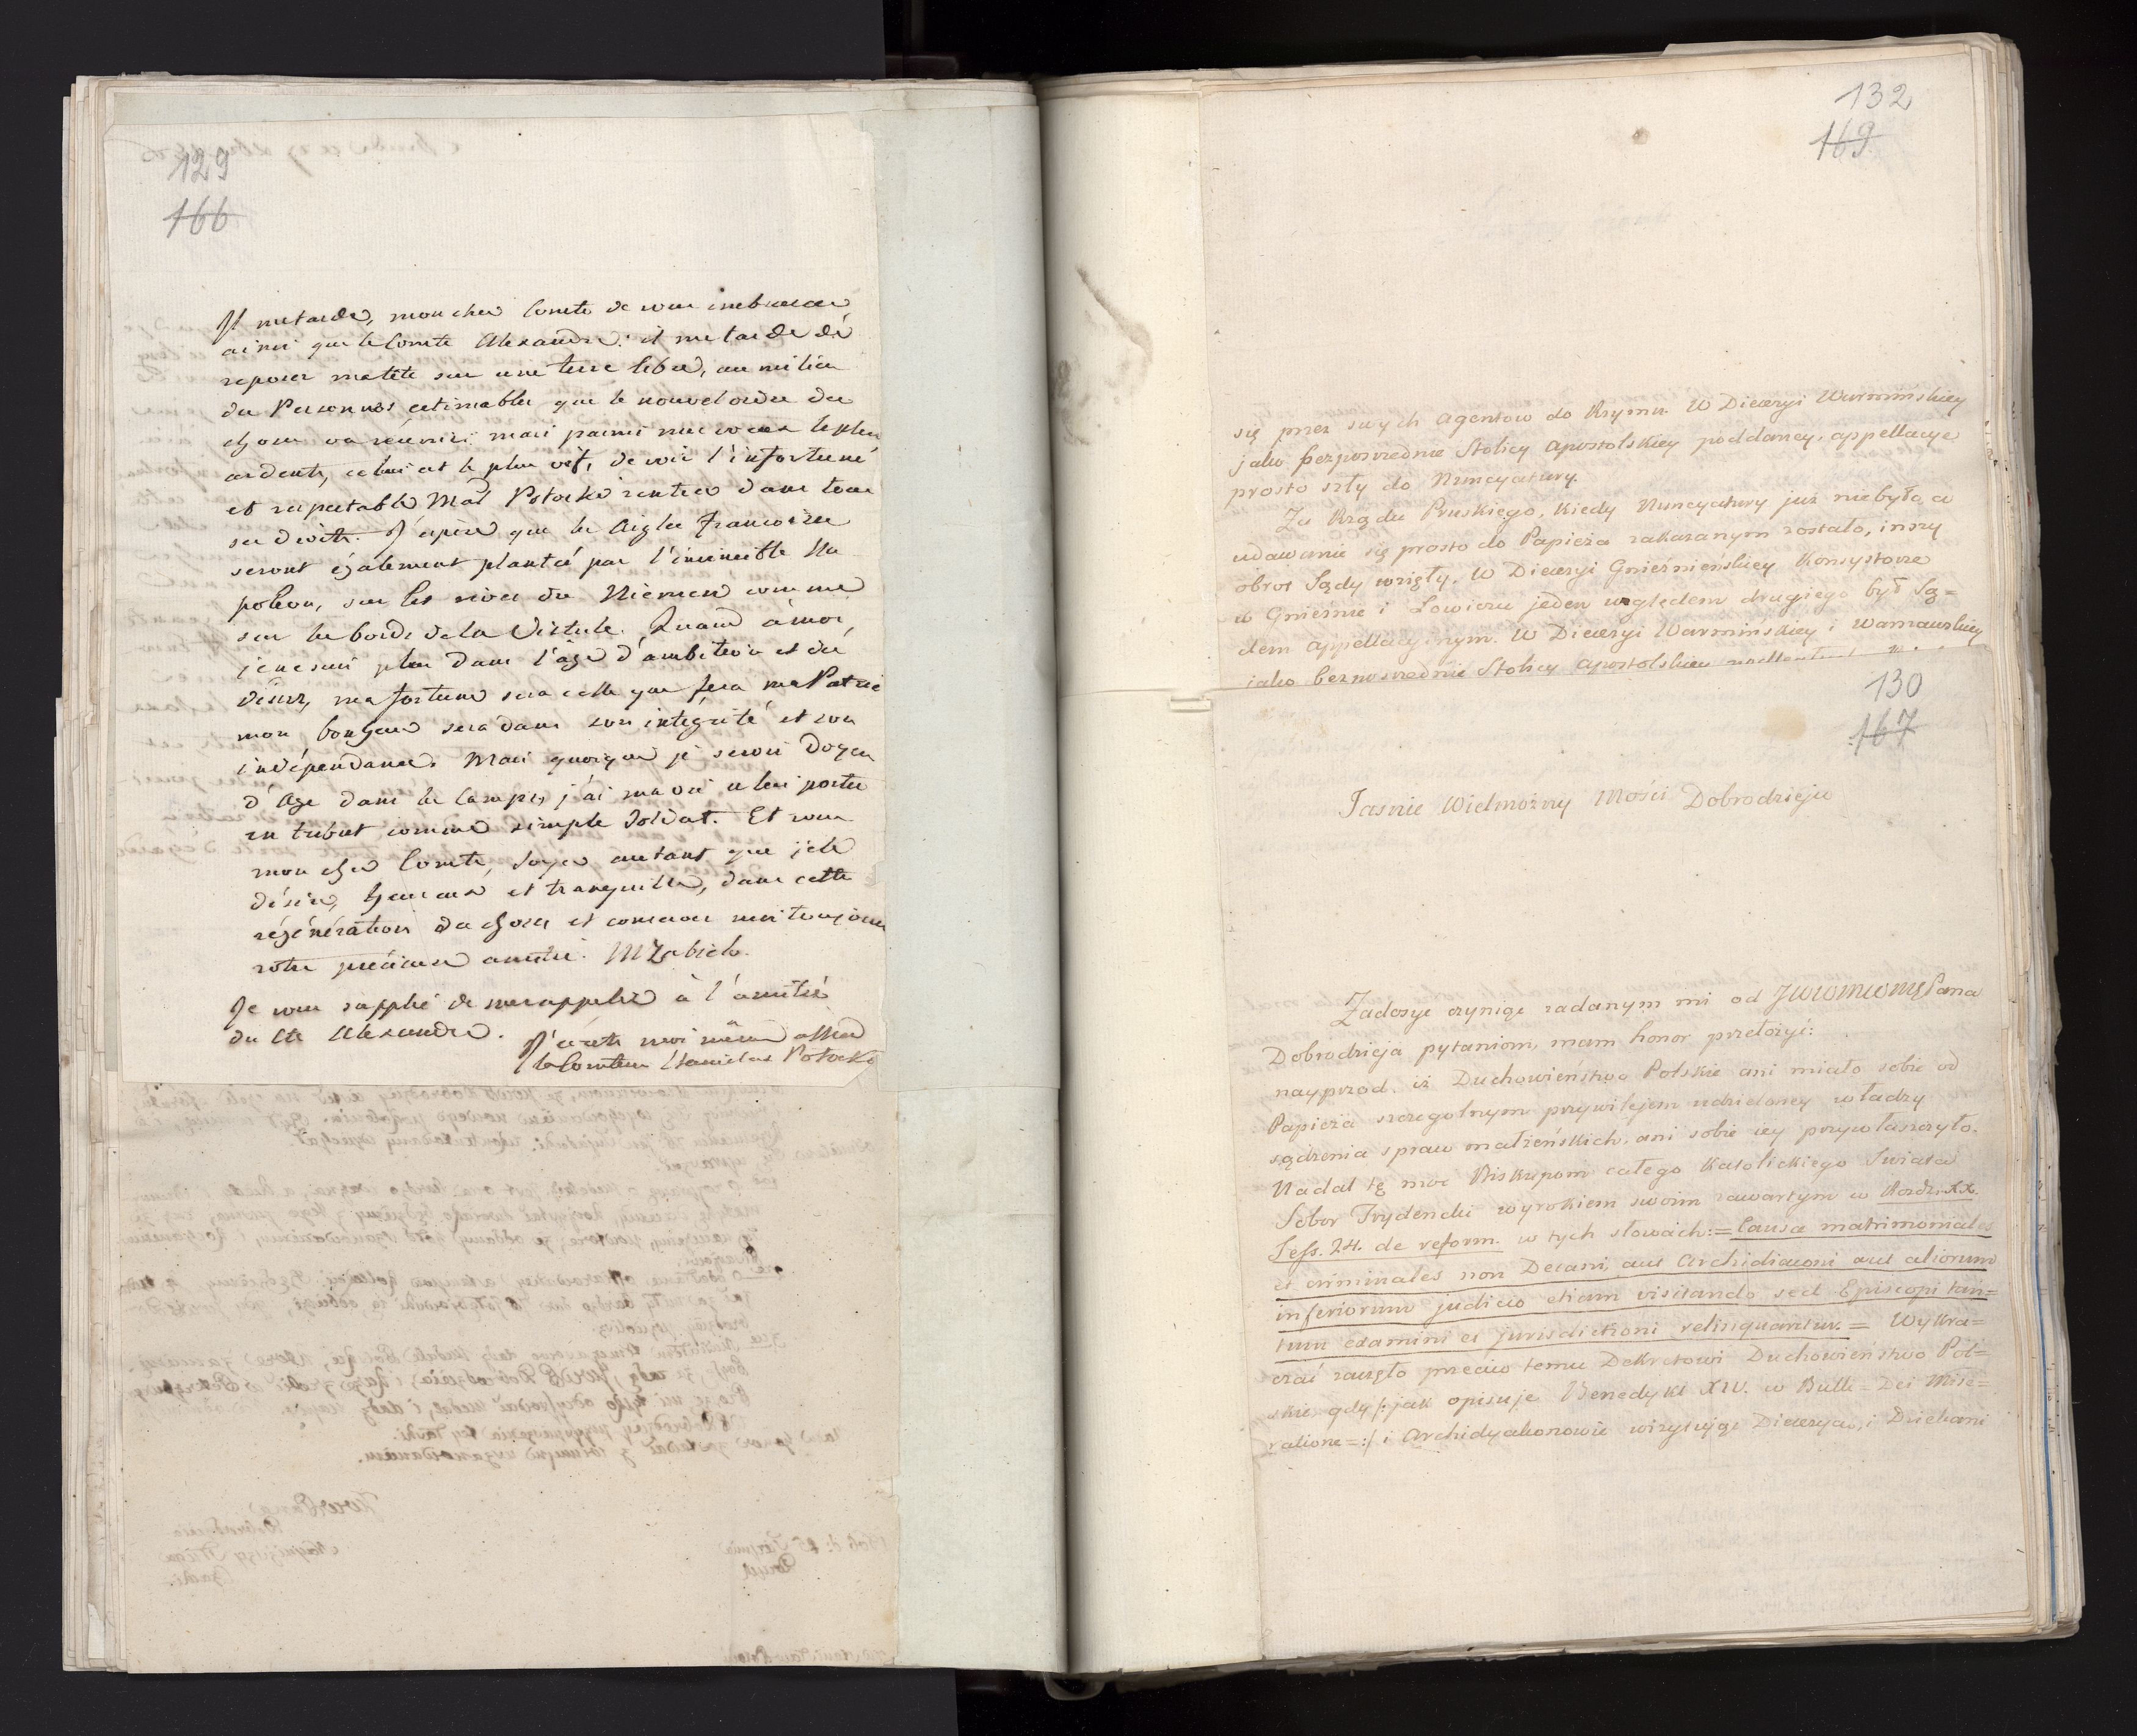 129
166
Il me tarde, mon cher Comte de vous embrasser
ainsi que le Comte Alexandre: il me tarde de
reposer ma tête sur une terre libre, au milieu
des Personnes estimables que le nouvel ordre des
choses va réunir: mais parmi mes voeux les plus
ardents, celui est le plus vif, de voir l'infortuné
et respectable Mal Potocki rentrer dans tous
ses droits. J'espère que les Aigles Françoises
seront également plantés par l'invincible Na
poleon, sur les rives du Niemen comme
sur les bords de la Vistule. Quand à moi,
je ne suis plus dans l'age d'ambition et de
désirs, ma fortune sera celle que fera ma Patrie
mon bonheur sera dans son intégrité et son
indépendance. Mais quoique je serois Doyen
d'Age dans les Camps, j'ai ma vie à lui porter
en tribut comme simple Soldat. Et vous
mon cher Comte, soyez autant que je le
désire, heureux et tranquille, dans cette
régénération des choses et conservez moi toujours
votre précieuse amitié. M Zabiello.
Je vous supplie de me rappeler à l'amitié
du Cte Alexandre.
J'écrits moi même à Mad
la Comtesse Stanislas Potocka
132
169
się przez swych Agentow do Rzymu. W Diecezyi Warmińskiey
jako bezposrednie Stolicy Apostolskiey poddaney, appellacye
prosto szły do Nuncyatury.
Za Rządu Pruskiego, kiedy Nuncyatury już niebyło, a
udawanie się prosto do Papieża zakazanym zostało, inszy
obrot Sądy wzięły. W Diecezyi Gnieźnieńskiey Konsystorze
w Gnieźnie i Łowiczu jeden względem drugiego był Są=
dem appellacyinym. W Diecezyi Warmińskiey i Warszawskiey
jako bezposrednie Stolicy Apostolskiey
130
167
Jasnie Wielmożny Mości Dobrodzieju
Zadosyć czyniąc zadanym mi od JWWMWMŚ Pana
Dobrodzieja pytaniom, mam honor przełożyć:
nayprzod. iż Duchowieństwo Polskie ani miało sobie od
Papieża szczegolnym przywilejem udzieloney władzy
sądzenia spraw małżeńskich, ani sobie iey przywłaszczyło.
Nadał tę moc Biskupom całego Katolickiego Swiata
Sobor Trydencki wyrokiem swoim zawartym w Rozdz. XX.
Sess. 24. de reform. w tych słowach: = Causa matrimoniales
et criminales non Decani, aut Archidiaconi aut aliorum
inferiorum judicio etiam visitando sed Episcopi tan=
tum examini et jurisdictioni relinquantur. = Wykra=
czać zaczęło przeciw temu Dekretowi Duchowieństwo Pol=
skie, gdy /: jak opisuje Benedykt XIV. w Bulli = Dei Mise=
ratione =:/ i Archidyakonowie wizytując Diecezye, i Dziekani